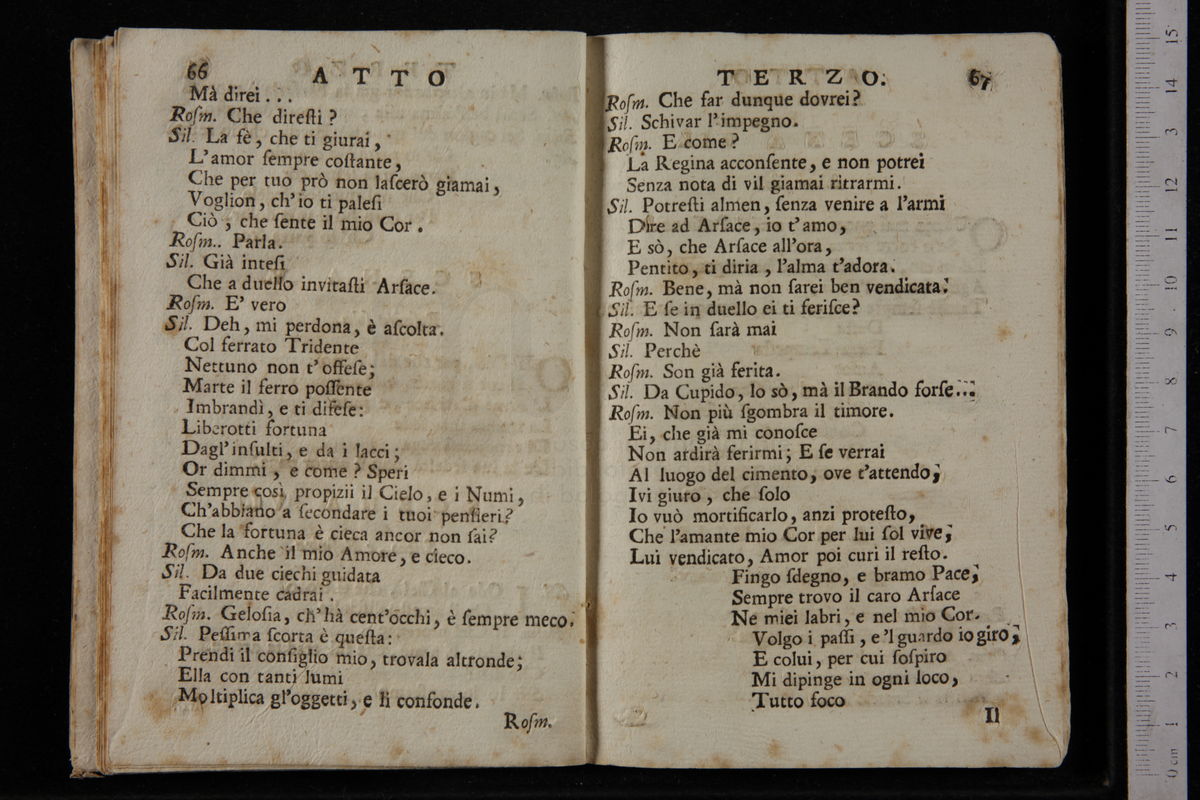 66
ATTO
Mà direi...
Roſm. Che direſti?
Sil. La fè, che ti giurai,
L'amor ſempre coſtante,
Che per tuo prò non laſcerò giamai,
Voglion, ch'io ti paleſi
Ciò, che ſente il mio Cor.
Roſm.. Parla.
Sil. Già inteſi
Che a duello invitaſti Arſace.
Roſm. E' vero
Sil. Deh, mi perdona, è aſcolta.
Col ferrato Tridente
Nettuno non t'offeſe;
Marte il ferro poſſente
Imbrandì, e ti difeſe:
Liberotti fortuna
Dagl'inſulti, e da i lacci;
Or dimmi, e come? Speri
Sempre così propizii il Cielo, e i Numi,
Ch'abbiano a ſecondare i tuoi penſieri?
Che la fortuna è cieca ancor non ſai?
Roſm. Anche il mio Amore, e cieco.
Sil. Da due ciechi guidata
Facilmente cadrai.
Roſm. Geloſia, ch'hà cent'occhi, è ſempre meco.
Sil. Peſſima ſcorta è queſta:
Prendi il conſiglio mio, trovala altronde;
Ella con tanti lumi
Moltiplica gl'oggetti, e li confonde.
Roſm.
TERZO.
67
Roſm. Che far dunque dovrei?
Sil. Schivar l'impegno.
Roſm. E come?
La Regina acconſente, e non potrei
Senza nota di vil giamai ritrarmi.
Sil. Potreſti almen, ſenza venire a l'armi
Dire ad Arſace, io t'amo,
E sò, che Arſace all'ora,
Pentito, ti diria, l'alma t'adora.
Roſm. Bene, mà non ſarei ben vendicata.
Sil. E ſe in duello ei ti feriſce?
Roſm. Non ſarà mai
Sil. Perchè
Roſm. Son già ferita.
Sil. Da Cupido, lo sò, mà il Brando forſe...
Roſm. Non più ſgombra il timore.
Ei, che già mi conoſce
Non ardirà ferirmi; E ſe verrai
Al luogo del cimento, ove t'attendo,
Ivi giuro, che ſolo
Io vuò mortificarlo, anzi proteſto,
Che l'amante mio Cor per lui ſol vive;
Lui vendicato, Amor poi curi il reſto.
Fingo ſdegno, e bramo Pace;
Sempre trovo il caro Arſace
Ne miei labri, e nel mio Cor.
Volgo i paſſi, e'l guardo io giro;
E colui, per cui ſoſpiro
Mi dipinge in ogni loco,
Tutto foco
Il
0 cm 1 2 3 4 5 6 7 8 9 10 11 12 13 14 15